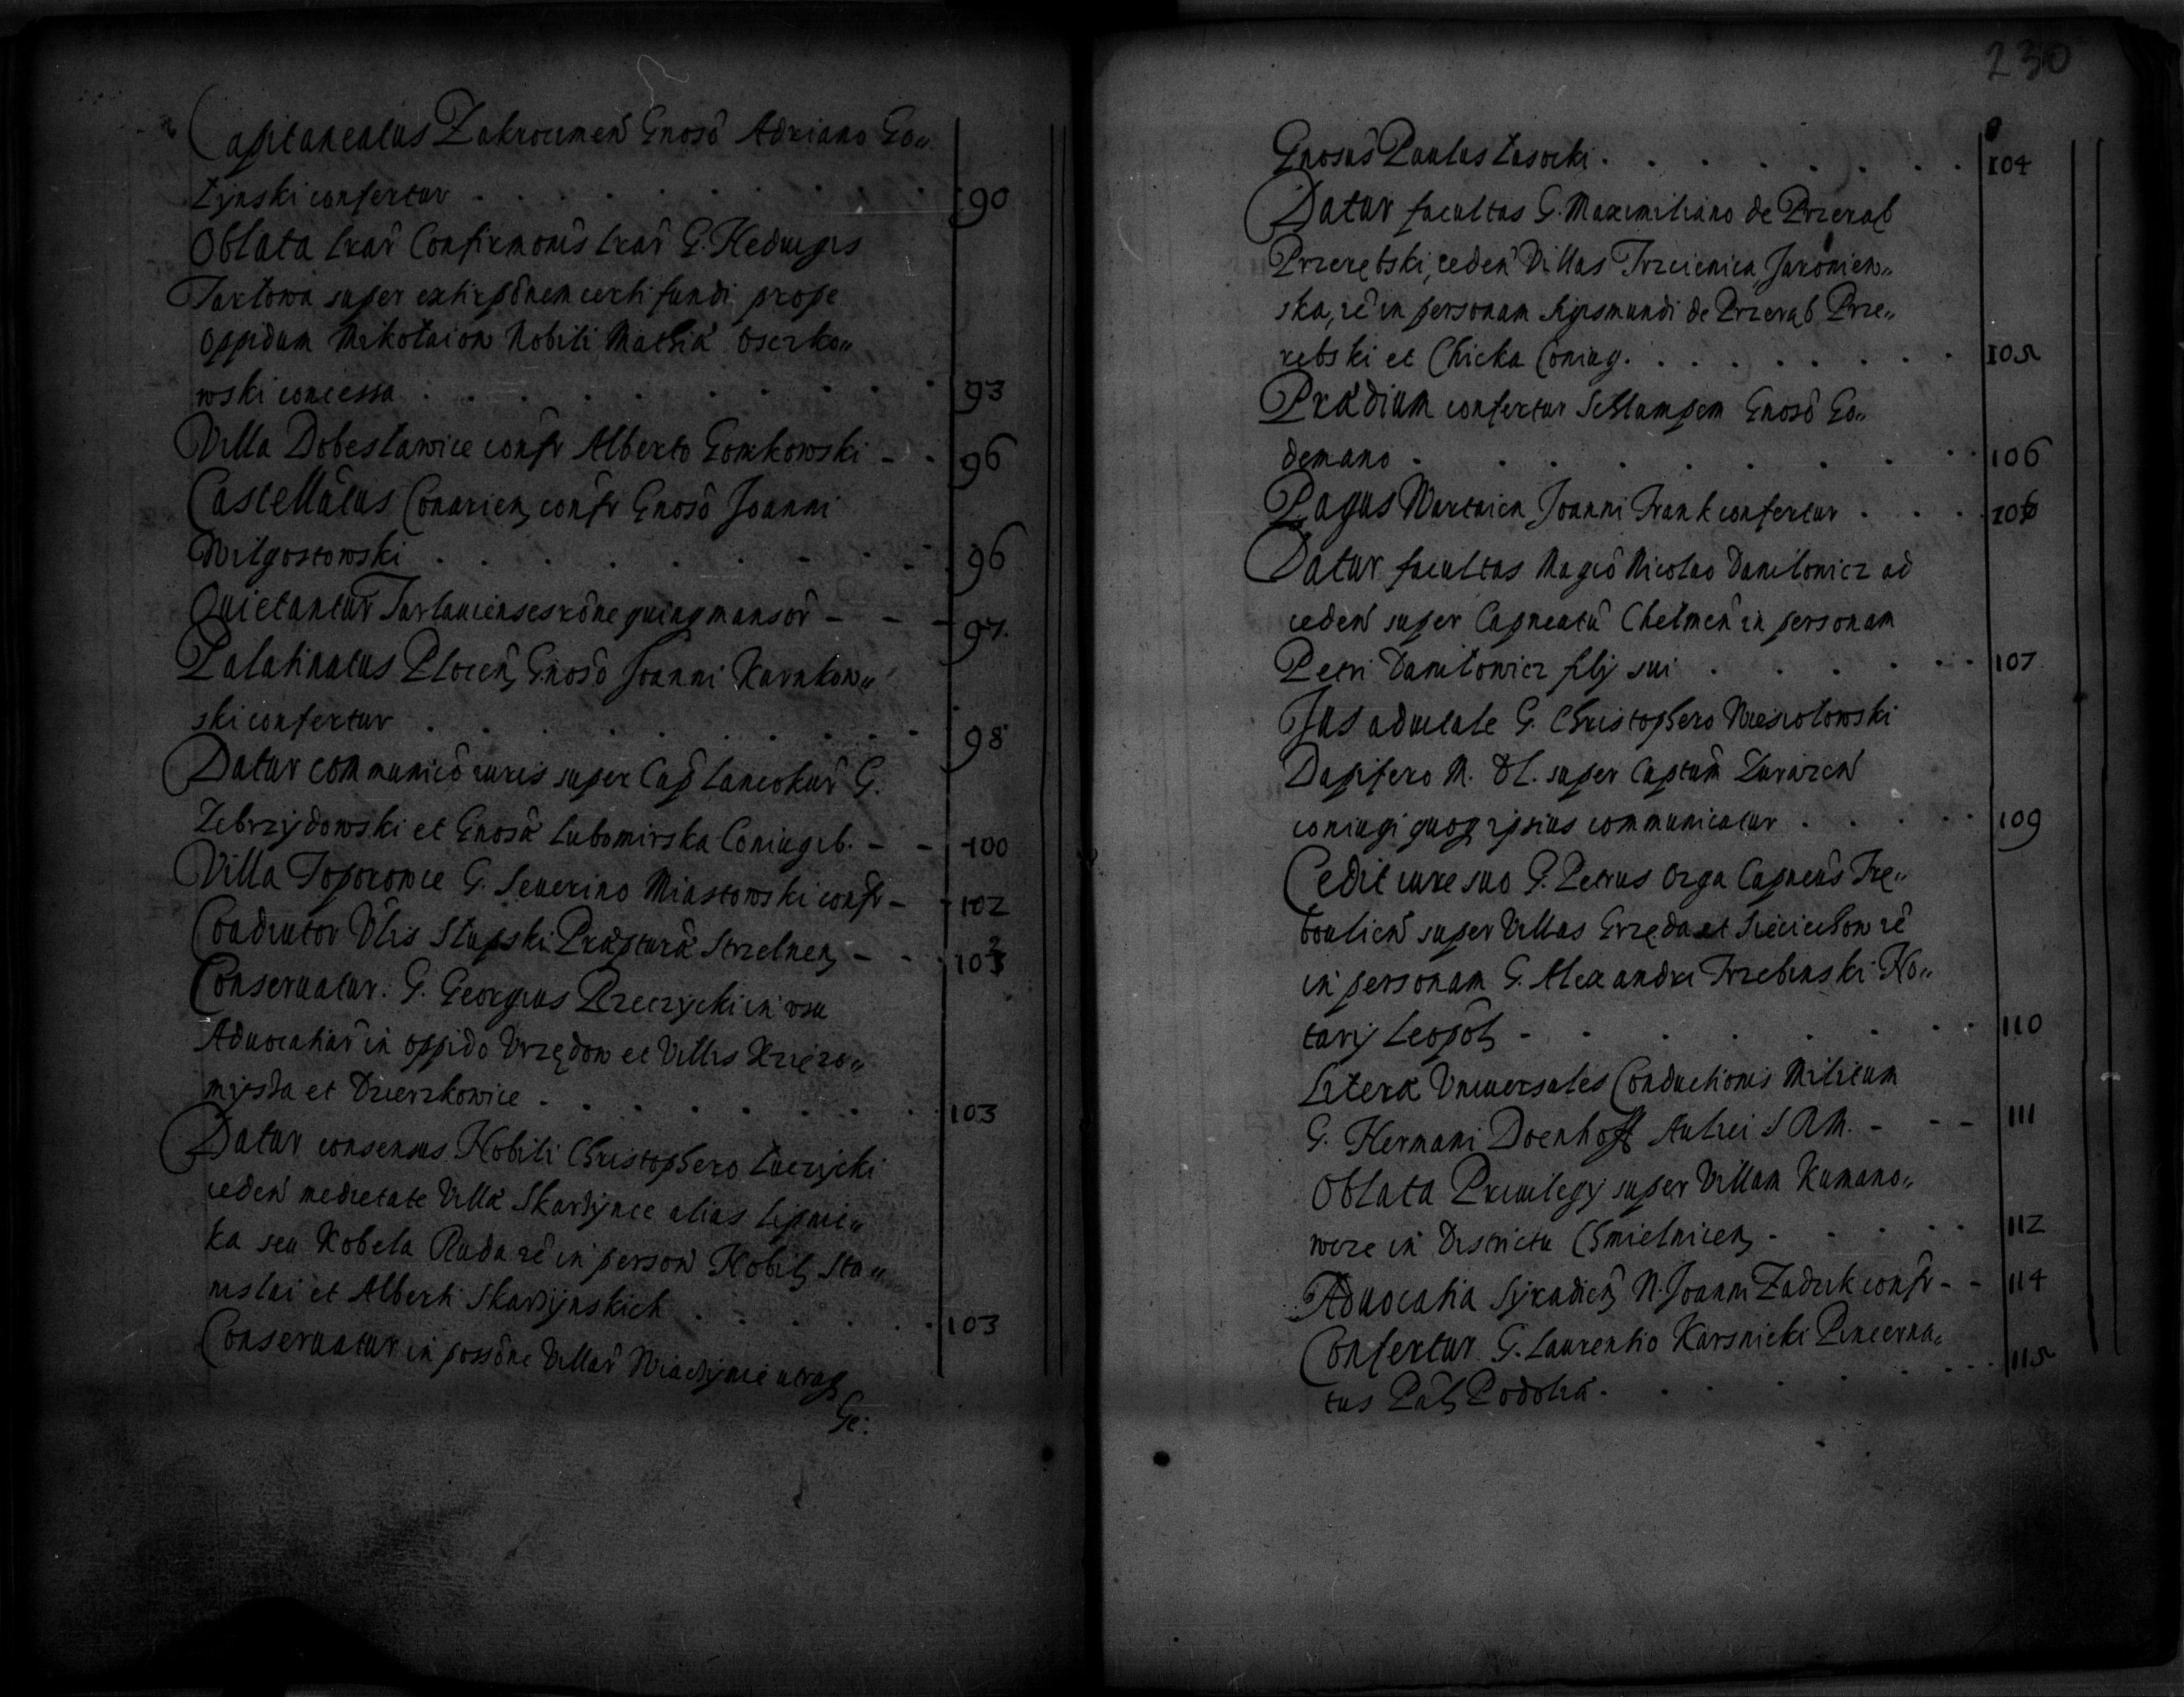 Capitaneatus Zakrocimen Gnoso Adriano Go„
łynski confertur 90
Oblata lrar Confirmonis lrar G. Heduigis
Tarłowa super extirponem certi fundi prope
oppidum Mikołaiow Nobili Mathiæ Oserko„
wski concessa 93
Villa Dobesławice confr Alberto Gomkowski - 96
Castellatus Conarien, confr Gnoso Joanni
Wilgostowski 96
Quietantur Tarlauienses rone quinq mansor - - 97.
Palatinatus Plocen, Gnoso Joanni Karnkow„
ski confertur 98
Datur communico iuris super Cap Lancokur G.
Zebrzydowski et Gnosa Lubomirska Coniugib. - - 100
Villa Toporowce G. Seuerino Miastowski confr - 102
Coadiutor Vlis Słupski Præpturæ Strzelnen, - 103
Conseruatur. G. Georgius Rzeczycki in vsu
Aduocatiar in oppido Vrzędow et Villis Xzięzo„
myssa et Dzierzkowice 103
Datur consensus Nobili Christophero Łuczycki
ceden medietate Villæ Skarzynce alias Lipni„
ka seu Kobela Ruda re in person Nobil, Sta„
nislai et Alberti Skarzynskich 103
Conseruatur in possone Villar utraq
Ge:
230
Gnosus Paulus Łasocki 104
Datur facultas G. Maximiliano de Przerąb
Przerębski, ceden Villas Trzcienica, Jaronien„
ska, re in personam Sigismundi de Przerąb Prze„
rebski et Chicka Coniug. 105
Prædium confertur Schlampem Gnoso Go„
demano 106
Pagus Joanni Frank confertur 106
Datur facultas Magco Nicolao Daniłowicz ad
ceden super Capneatu Chelmen in personam
Petri Daniłowicz filij sui 107
Jus aduitale G. Christophero Wiesiołowski
Dapifero M. D L. super Captum
coniugi quoq ipsius communicatur 109
Cedit iure suo G. Petrus Ozga Capneus Tre„
boulien super Villas Grzęda et re
in personam G. Alexandri Trzebinski No„
tarij Leopol, 110
Literæ Vniuersales Conductionis Militum
G. Hermani Doenhoff Aulici S R M. - - - 111
Oblata Priuilegij super Villam Kumano„
wce in Districtu Chmielnicen, 112
Aduocatia Syradien, N. Joanni Zadzik confr - - 114
Confertur G. Laurentio Karsnicki Pincerna„
tus Pal, Podoliæ. 115